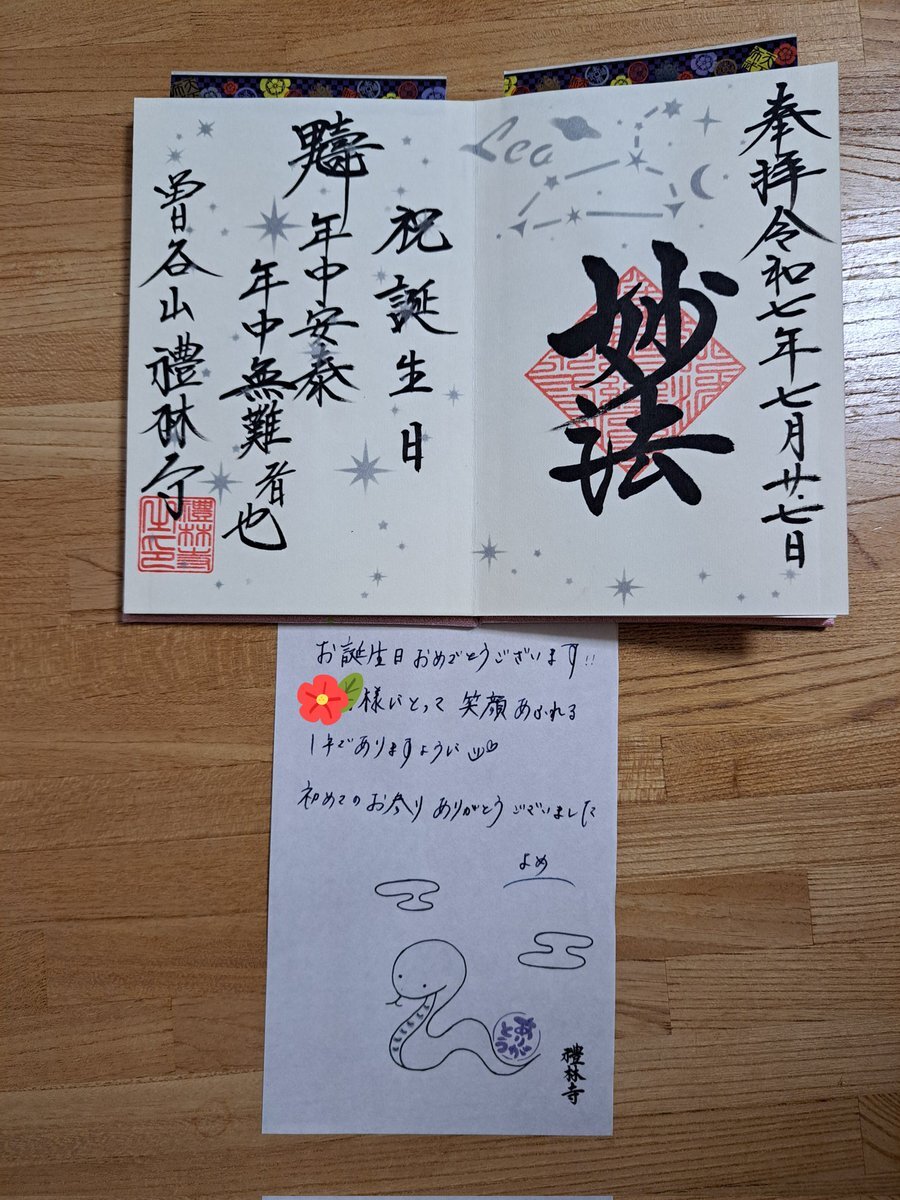 奉拝令和七年七月廿七日
Leo
妙法
祝誕生日
年中安泰
年中無難者也
曽谷山禮林寺
禮林寺之印
お誕生日おめでとうございます!!
様にとって 笑顔あふれる
1年でありますように
初めてのお参り ありがとうございました
よめ
ありがとう
禮林寺